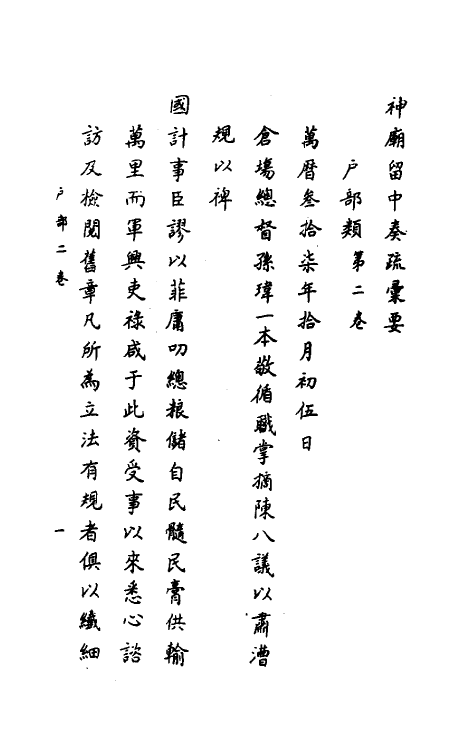 神廟留中奏疏彙要
户部類第二卷
萬曆叁拾柒年拾月初伍日
倉場總督孫瑋一本敬循職掌摘陳八議以肅漕
規以裨
國計事臣謬以菲庸叨總粮儲自民髓民膏供輸
萬里而軍興吏祿咸于此資受事以來悉心諮
訪及檢閱舊章凡所為立法有規者俱以纖細
户部二卷
一